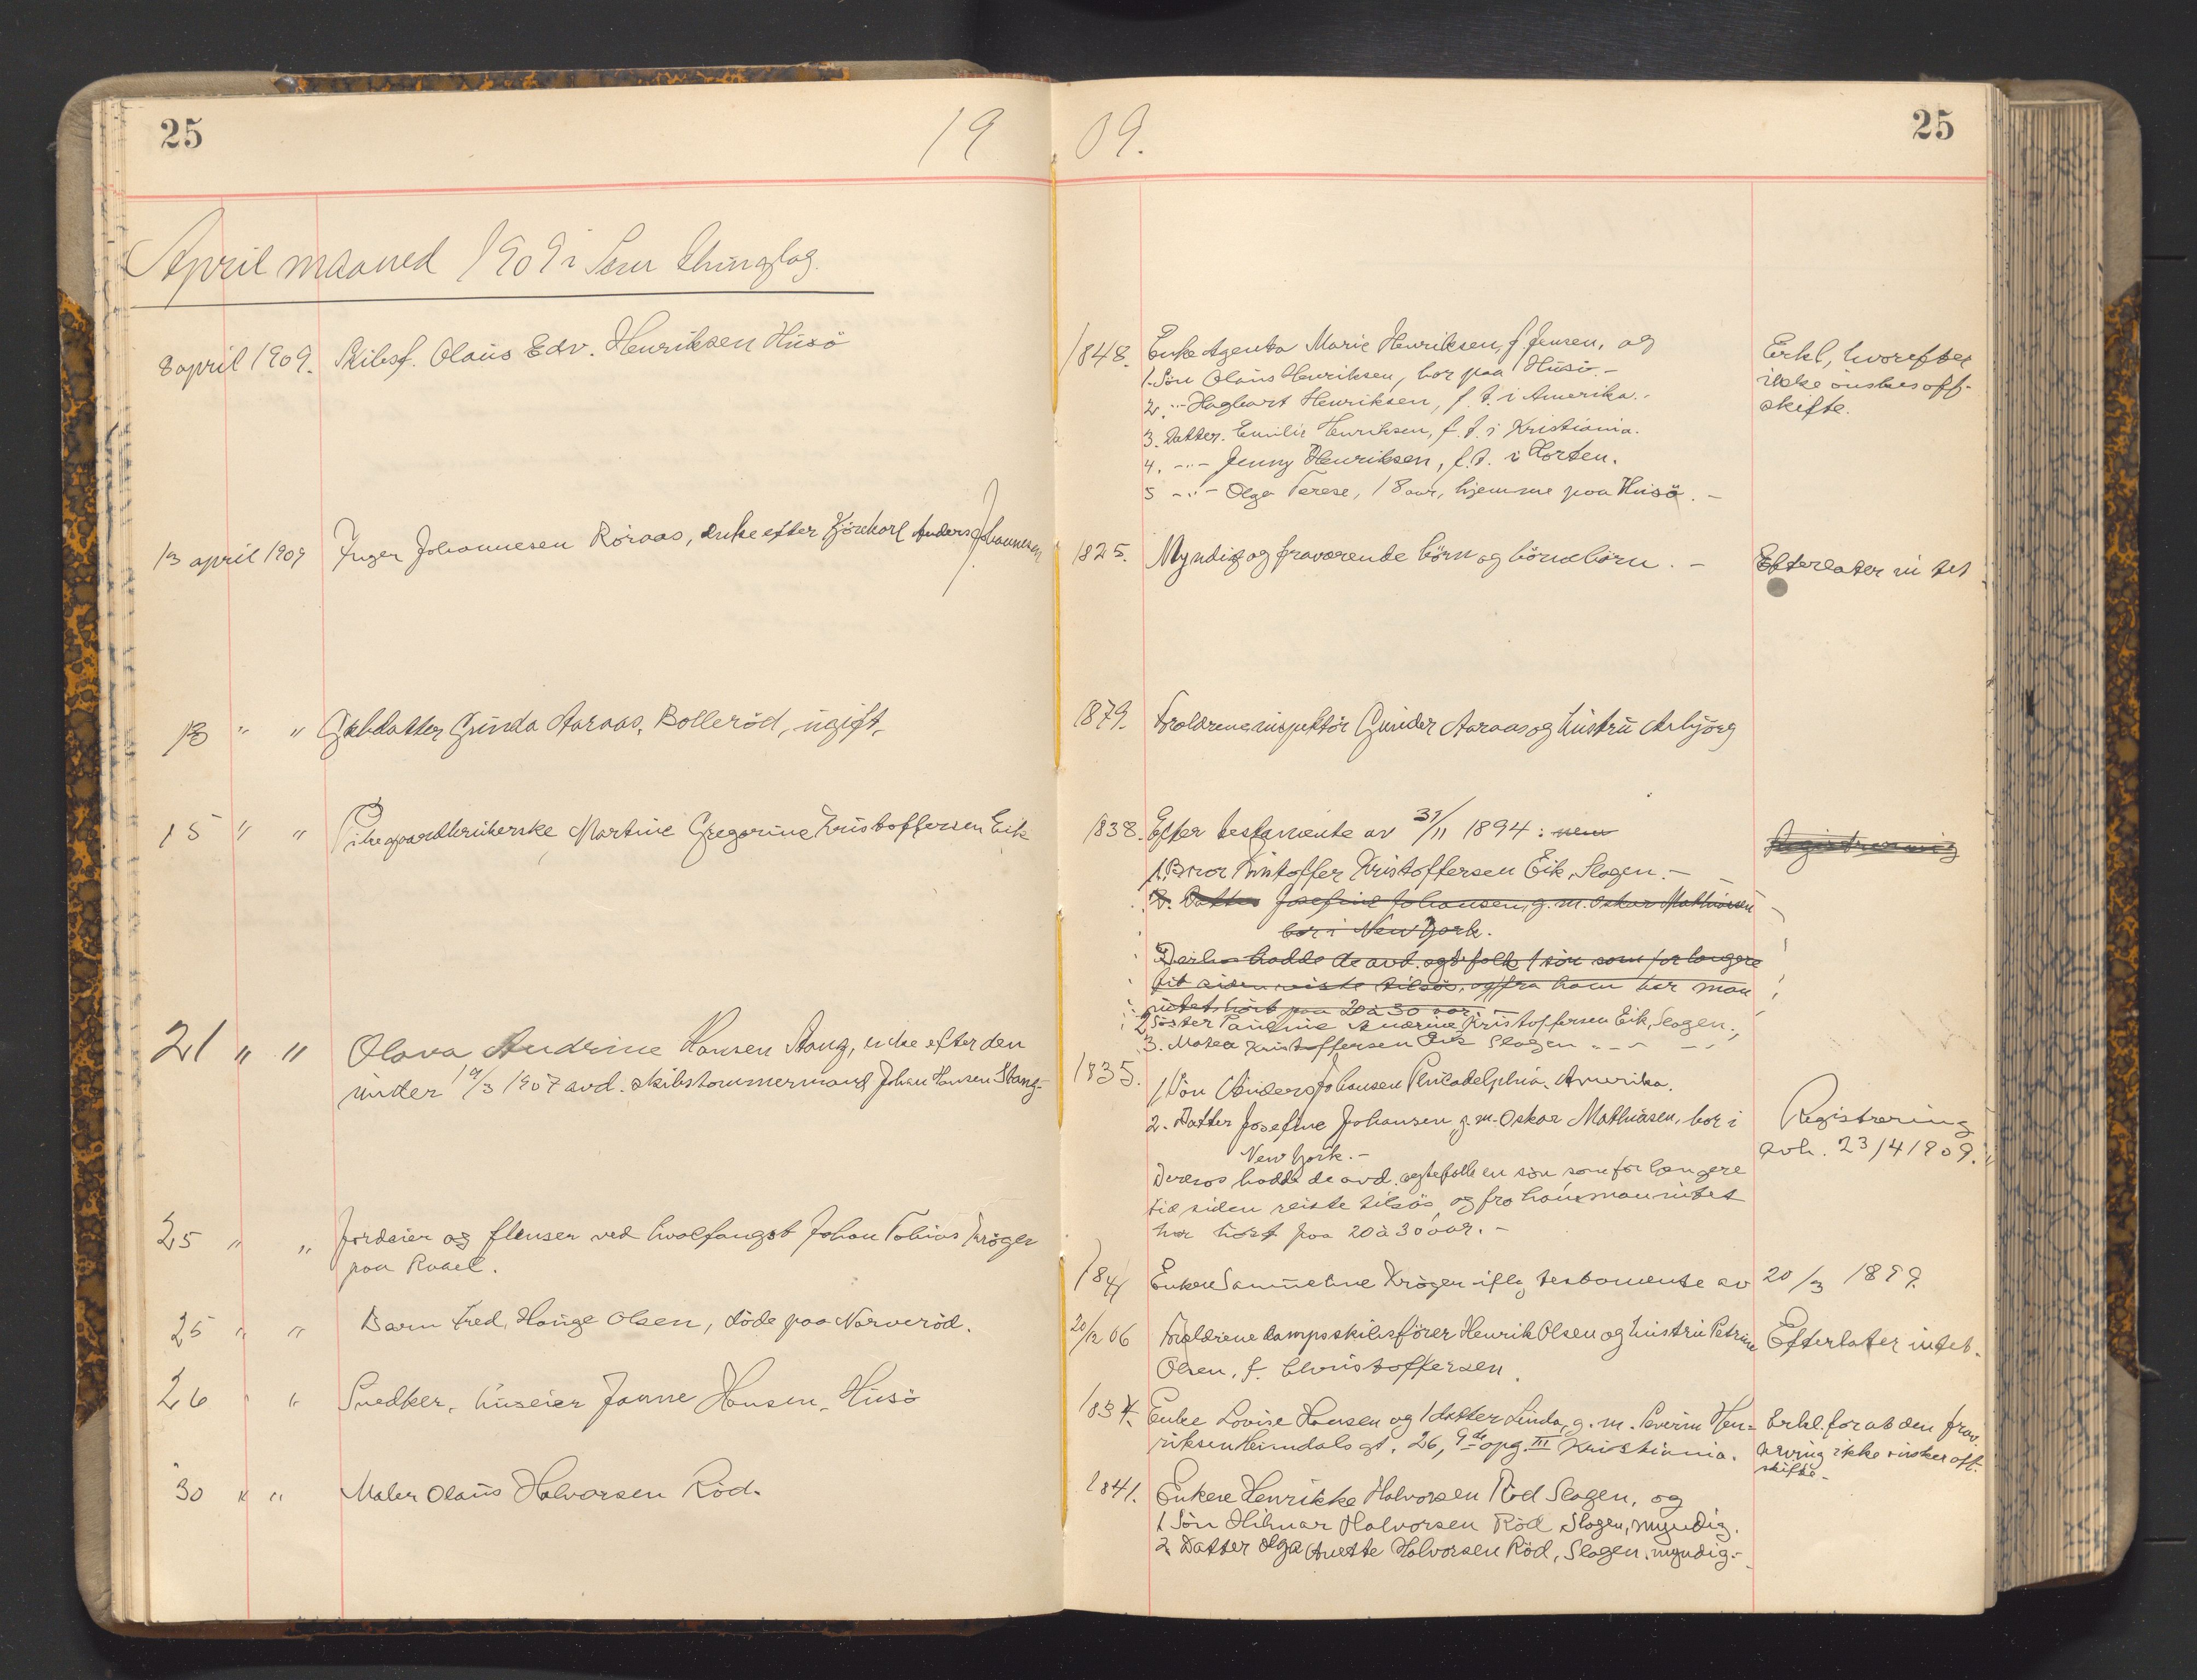 25
1909.
25
April maaned 1909 i Sem thinglag.
8 april 1909. Skibsf. Olaus Edv. Henriksen Husö
1848. Enke Agenta Marie Henriksen, f. Jensen, og
1. Sön Olaus Henriksen, bor paa Husö. -
2. -"- Hagbart Henriksen, f. t. i Amerika.
3. Datter. Emilie Henriksen, f. t. i Kristiania.
4. -"- Jenny Henriksen, f. t. i Horten.
5 -"- Olga Terese, 18 aar, hjemme paa Husö. -
Erkl, hvorefter
ikke önskes off.
skifte.
13 april 1909 Inger Johannesen Röraas, enke efter Kjörekarl Anders Johannesen
1825. Myndige og fraværende börn og börnebörn. -
Efterlater intet
13 " " Gaardatter Gunda Aaraas, Bolleröd, ugift.
1879. Forældrene inspektör Gunder Aaraas og hustru Asbjörg
15 " " Pike gaardbrukerske Martine Gregorine Kristoffersen Eik
1838. Efter testamente av 31/11 1894:
1. Bror Kristoffer Kristoffersen Eik, Slagen. -
2. Datter Josefine Johansen, g. m. Oskar Mathiasen
bor i New York.
hadde de avd. egtefolk 1 sön som for længere
tid siden reiste tilsös, og fra ham har man
intet hört paa 20 à 30 aar. -
2. Söster Pauline Kristoffersen Eik, Slagen.
3. Matea Kristoffersen Eik Slagen
Registrering
21 " " Olava Andrine Hansen Stang, enke efter den
under 19/3 1907 avd. skibstömmermand Johan Hansen Stang. -
1835. 1 Sön Anders Johansen Philadelphia, Amerika.
2. Datter Josefine Johansen, g. m. Oskar Mathiasen, bor i
New York. -
Desuos hadde de avd. egtefolk en sön som for længere
tid siden reiste tilsös, og fra ham man intet
har hört paa 20 à 30 aar. -
Registrering
avh. 23/4 1909.
25 " " Jordeier og flenser ved hvalfangst Johan Tobias Kröger
paa Ruael.
1841 Enken Samueline Kröger iflg testamente av 20/3 1899.
25 " " Barn Fred. Hauge Olsen, döde paa Narveröd.
20/12 06 Forældrene dampskibsförer Henrik Olsen og hustru Petrine
Olsen, f. Christoffersen.
Efterlater intet.
26 " " Snedker, huseier Janne Hansen, Husö
1834. Enke Lovise Hansen og 1 datter Linda, g. m. Severin Hen=
riksen Heimdals gt. 26, 9de opg. III Kristiania.
Erkl. for at den frav.
arving ikke önsker off.
skifte. -
30 " " Maler Olaus Halvorsen Röd.
1841. Enken Henrikke Halvorsen Röd Slagen, og
1 Sön Hilmar Halvorsen Röd, Slagen, myndig.
2 Datter Olga Anette Halvorsen Röd, Slagen, myndig. -